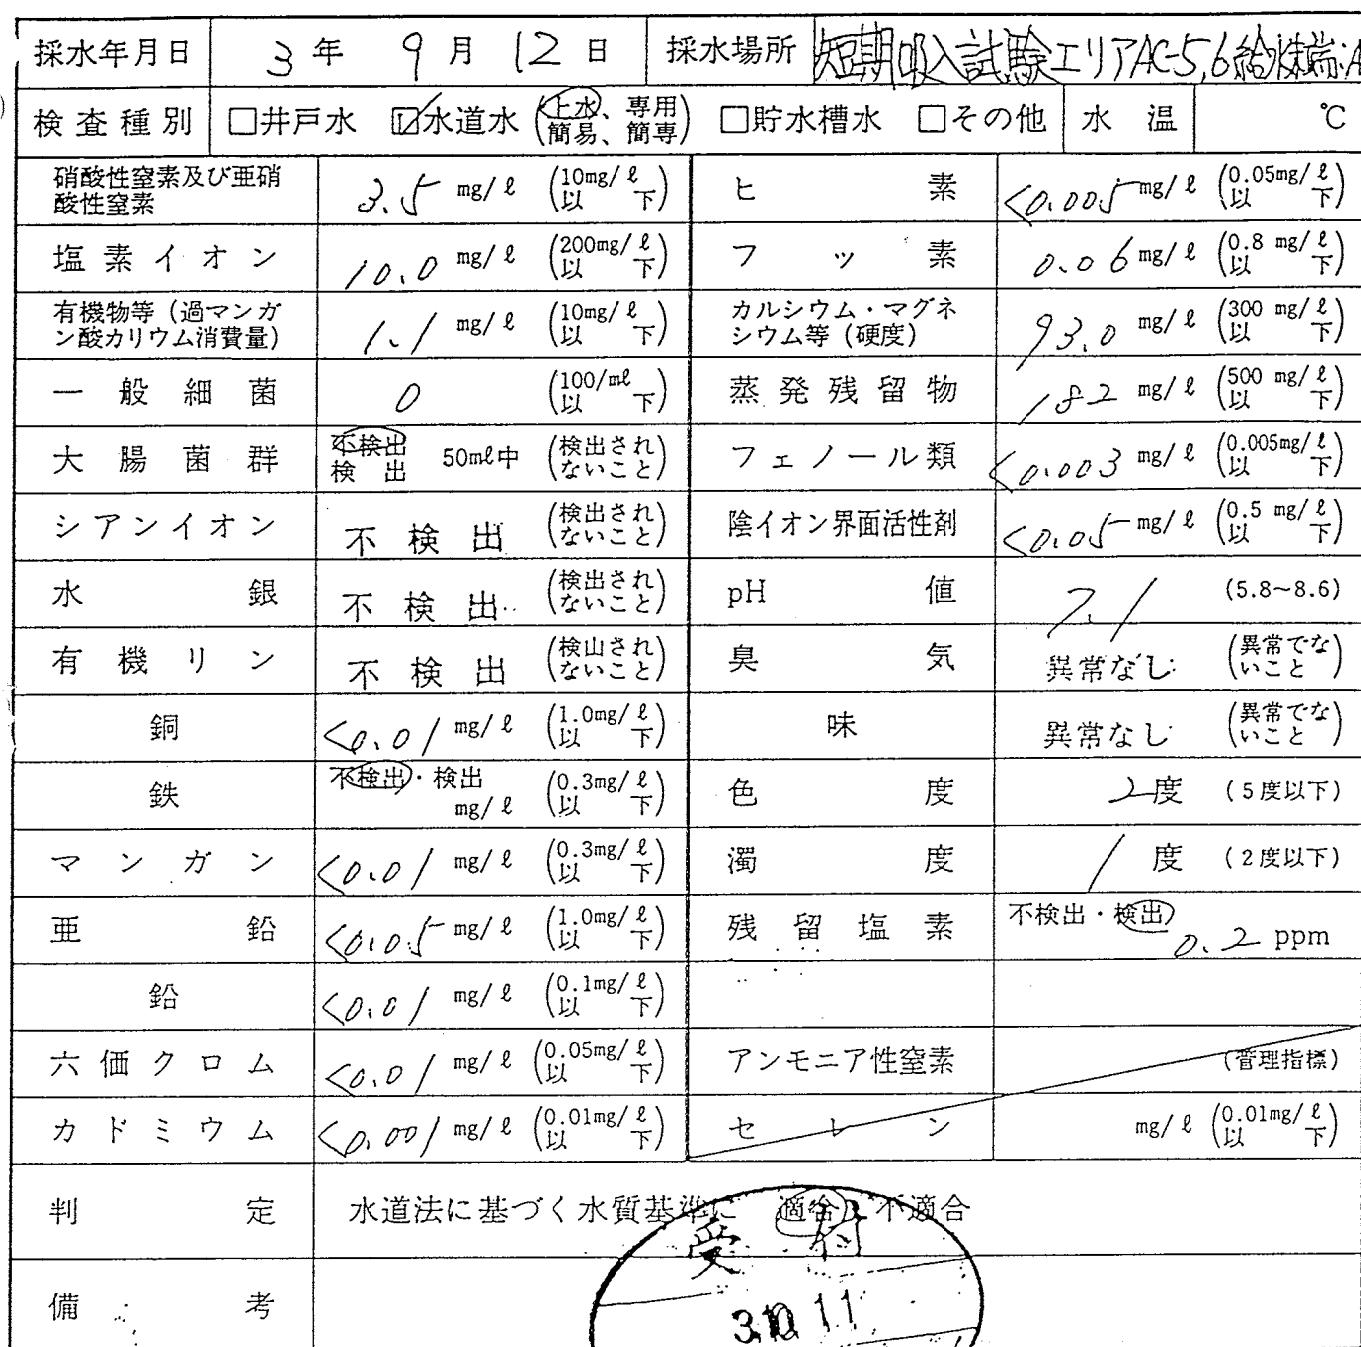 採水年月日 3年 9月 12日 採水場所 短期吸入試験エリアAC-5,6給水末端:A
検査種別 □井戸水 ☑水道水 (上水、専用 簡易、簡専) □貯水槽水 □その他 水温 ℃
硝酸性窒素及び亜硝酸性窒素 3.5 mg/ℓ (10mg/ℓ以下) ヒ素 <0.005 mg/ℓ (0.05mg/ℓ以下)
塩素イオン 10.0 mg/ℓ (200mg/ℓ以下) フッ素 0.06 mg/ℓ (0.8 mg/ℓ以下)
有機物等(過マンガン酸カリウム消費量) 1.1 mg/ℓ (10mg/ℓ以下) カルシウム・マグネシウム等(硬度) 93.0 mg/ℓ (300 mg/ℓ以下)
一般細菌 0 (100/mℓ以下) 蒸発残留物 182 mg/ℓ (500 mg/ℓ以下)
大腸菌群 不検出 検出 50mℓ中 (検出されないこと) フェノール類 <0.003 mg/ℓ (0.005mg/ℓ以下)
シアンイオン 不検出 (検出されないこと) 陰イオン界面活性剤 <0.05 mg/ℓ (0.5 mg/ℓ以下)
水銀 不検出 (検出されないこと) pH値 7.1 (5.8~8.6)
有機リン 不検出 (検出されないこと) 臭気 異常なし (異常でないこと)
銅 <0.01 mg/ℓ (1.0mg/ℓ以下) 味 異常なし (異常でないこと)
鉄 不検出・検出 mg/ℓ (0.3mg/ℓ以下) 色度 2度 (5度以下)
マンガン <0.01 mg/ℓ (0.3mg/ℓ以下) 濁度 1度 (2度以下)
亜鉛 <0.05 mg/ℓ (1.0mg/ℓ以下) 残留塩素 不検出・検出 0.2 ppm
鉛 <0.01 mg/ℓ (0.1mg/ℓ以下)
六価クロム <0.01 mg/ℓ (0.05mg/ℓ以下) アンモニア性窒素 (管理指標)
カドミウム <0.001 mg/ℓ (0.01mg/ℓ以下) セレン mg/ℓ (0.01mg/ℓ以下)
判定 水道法に基づく水質基準に 適合 不適合
受付
備考
3.10.11